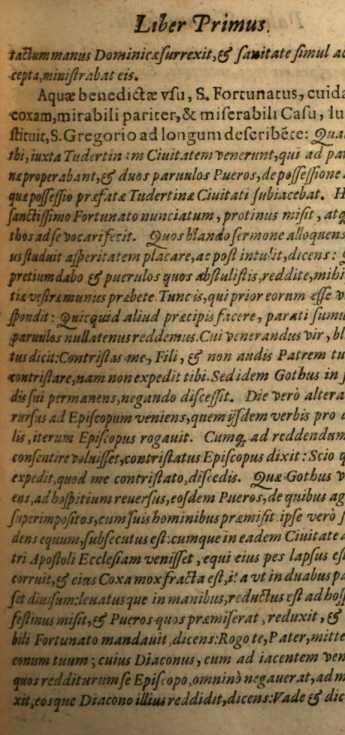 Liber Primus.
tactum manus Dominicæ surrexit, & sanitate simul ac
cepta, ministrabat eis.
Aquæ benedictæ vsu, S. Fortunatus, cuida
coxam, mirabili pariter, & miserabili Casu, lu
stituit, S. Gregorio ad longum describẽte: Qua
thi, iuxta Tudertinam Ciuitatem venerunt, qui ad par
næ properabant, & duos paruulos Pueros, de possessione a
quæ possessio præfatæ Tudertinæ Ciuitati subiacebat. H
sanctissimo Fortunato nunciatum, protinus misit, atq
thos ad se vocari fecit. Quos blando sermone alloquens
us studuit asperitatem placare, ac post intulit, dicens:
pretium dabo & puerulos quos abstulistis, reddite, mihi
tiæ vestræ munus præbete. Tunc is, qui prior eorum esse v
spondit: Quicquid aliud præcipis facere, parati sumu
paruulos nullatenus reddemus. Cui venerandus vir, bl
tus dicit: Contristas me, Fili, & non audis Patrem tu
contristare, nam non expedit tibi. Sed idem Gothus in f
dis sui permanens, negando discessit. Die verò altera
rursus ad Episcopum veniens, quem ijsdem verbis pro
lis, iterum Episcopus rogauit. Cumq, ad reddendum
consentire voluisset, contristatus Episcopus dixit: Scio q
expedit, quod me contristato, discedis. Quæ Gothus v
ens, ad hospitium reuersus, eosdem Pueros, de quibus ag
superimpositos, cum suis hominibus præmisit. ipse verò
dens equum, subsecutus est: cumque in eadem Ciuitate a
tri Apostoli Ecclesiam venisset, equi eius pes lapsus es
corruit, & eius Coxa mox fracta est, ita vt in duabus pa
set diuisum: leuatusque in manibus, reductus est ad hosp
festinus misit, & Pueros quos præmiserat, reduxit, &
bili Fortunato mandauit, dicens: Rogo te, Pater, mitte
conum tuum; cuius Diaconus, cum ad iacentem ven
quos redditurum se Episcopo, omninò negauerat, ad m
xit, eosque Diacono illius reddidit, dicens: Vade & dic